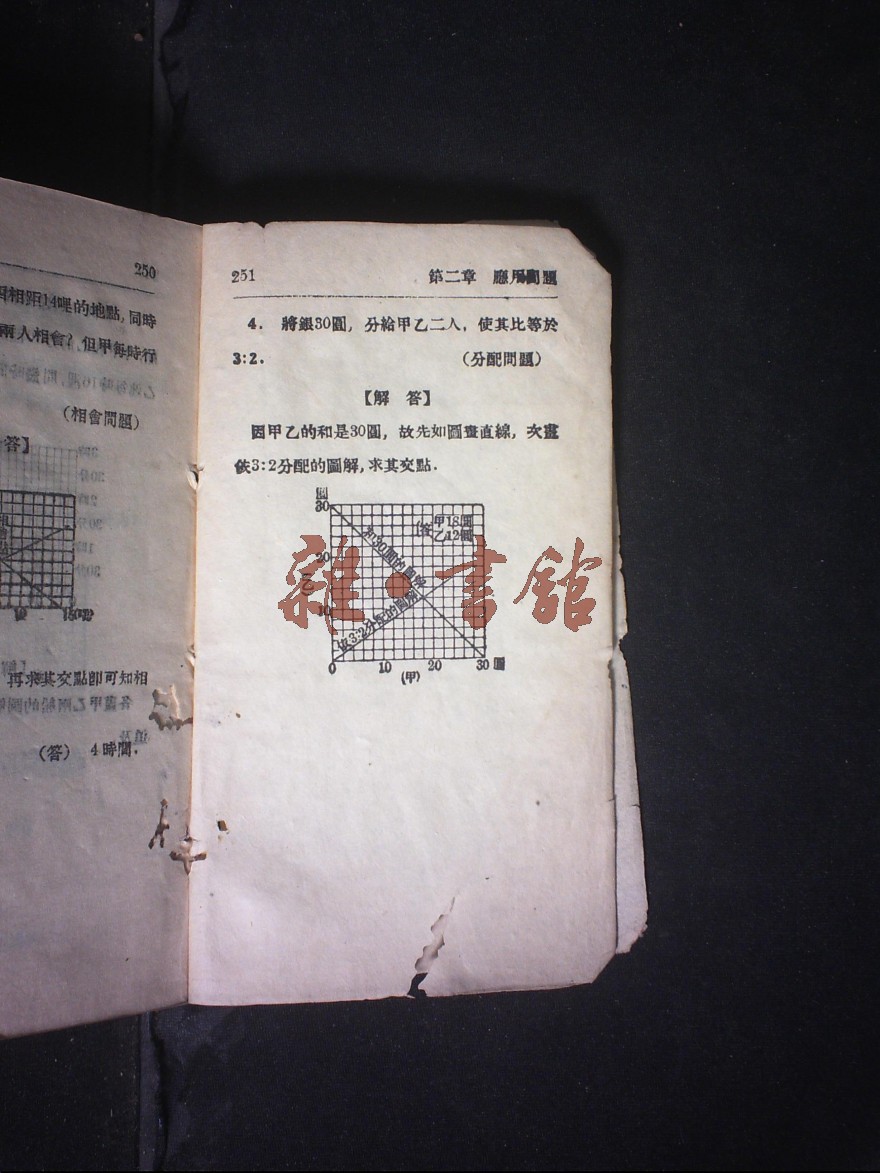 250
相距14哩的地點,同時
兩人相會?但甲每時行
(相會問題)
答】
再求其交點即可知相
(答) 4時間.
251 第二章 應用問題
4. 將銀30圓, 分給甲乙二人, 使其比等於
3:2. (分配問題)
【解 答】
因甲乙的和是30圓, 故先如圖畫直線, 次畫
依3:2分配的圖解,求其交點.
圓
30
甲18圓
(答)
乙12圓
和30圓的圖解
20
乙
10
依3:2分配的圖解
0 10 20 30 圓
(甲)
雜·書館